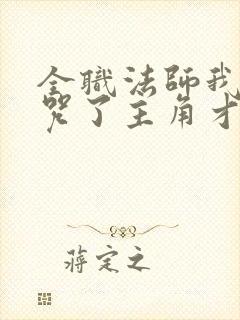 全職法師我
咒了主角才
蔣定之